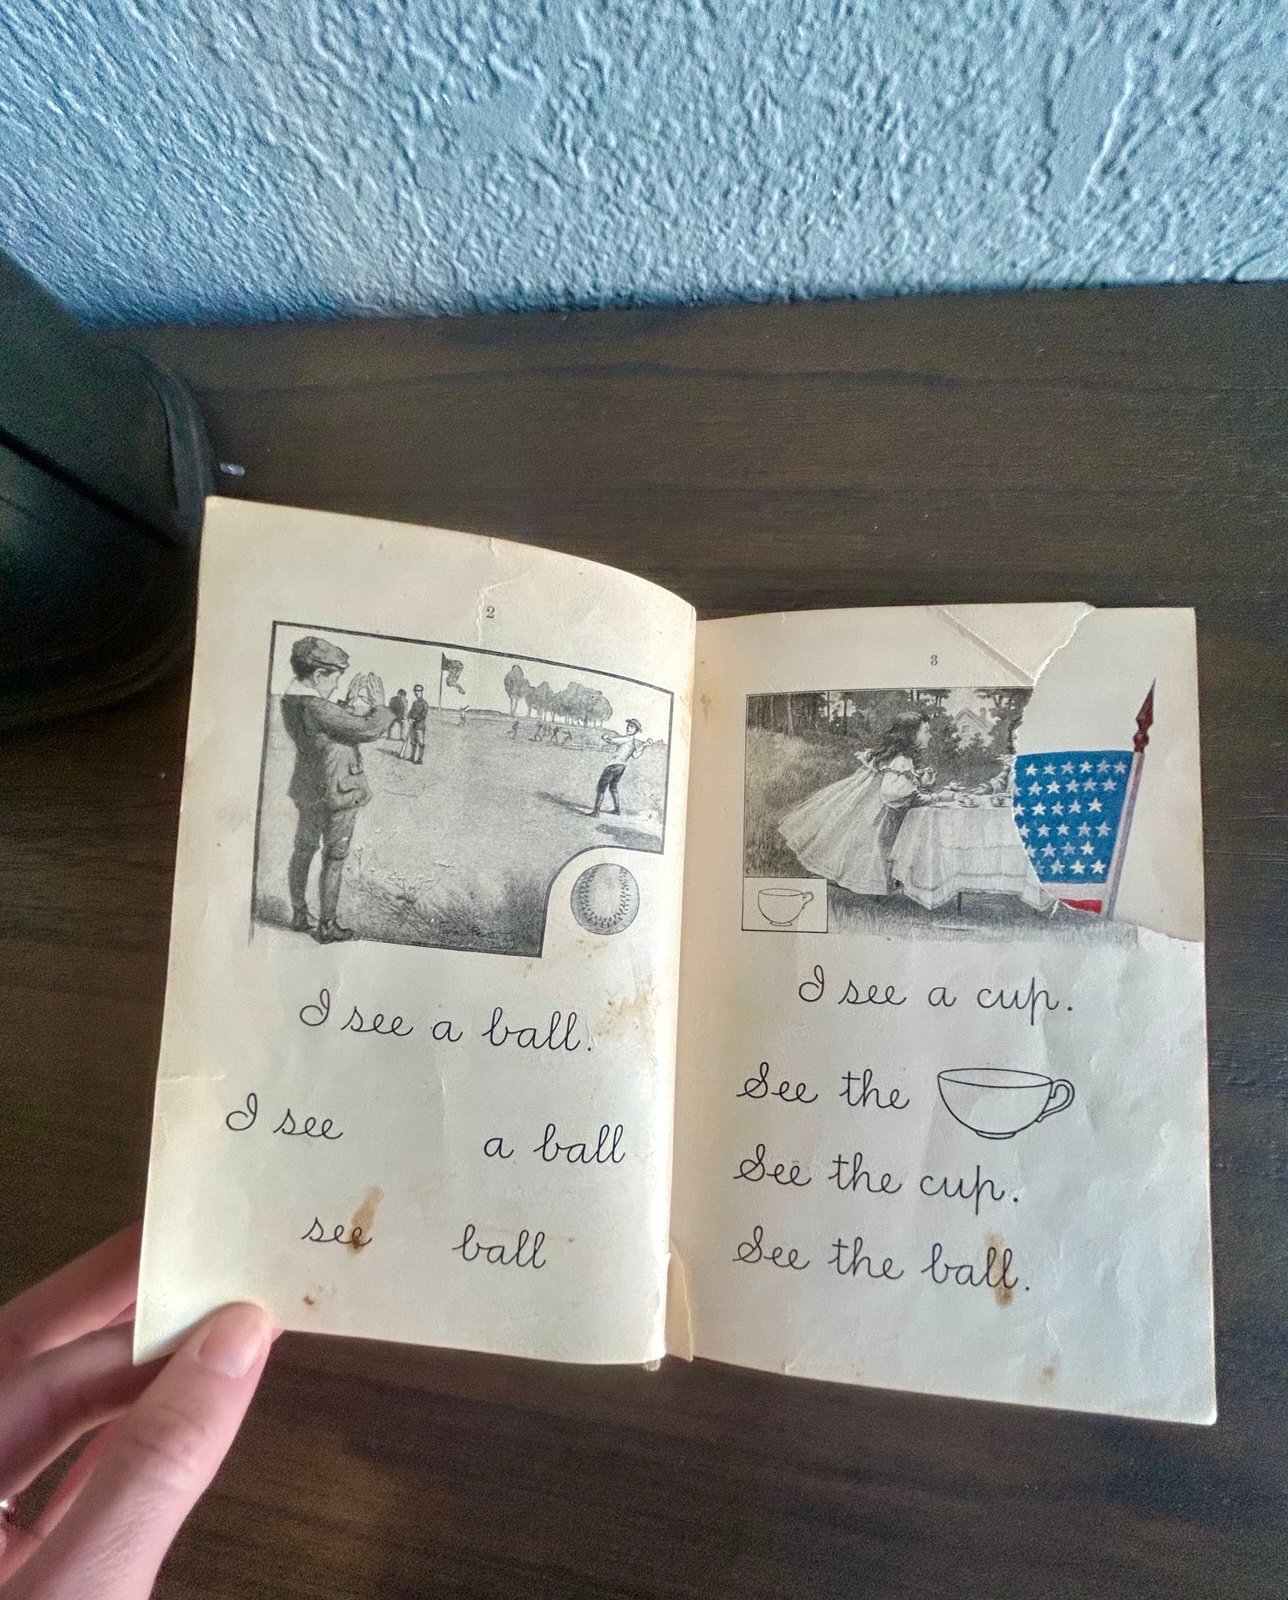 2
I see a ball.
I see a ball
see ball
3
I see a cup.
See the
See the cup.
See the ball.